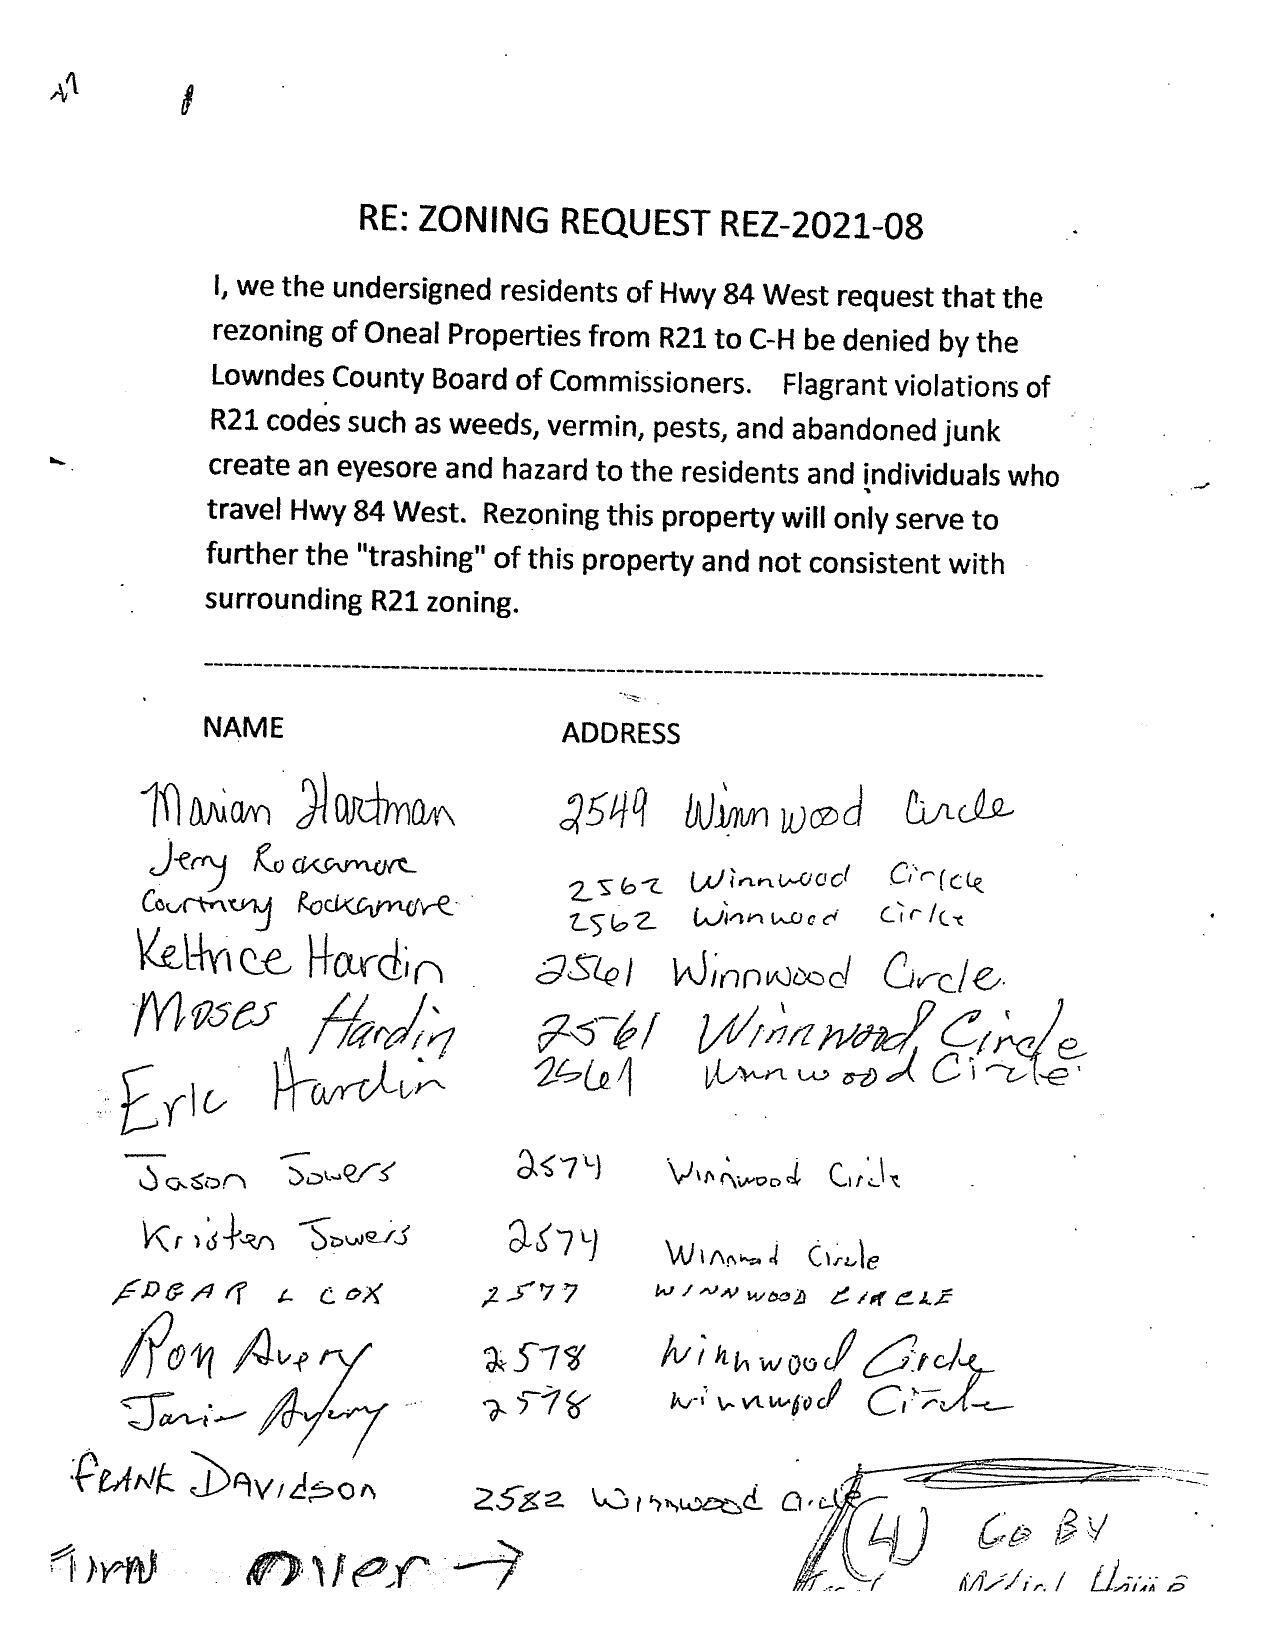 RE: ZONING REQUEST REZ-2021-08
I, we the undersigned residents of Hwy 84 West request that the
rezoning of Oneal Properties from R21 to C-H be denied by the
Lowndes County Board of Commissioners. Flagrant violations of
R21 codes such as weeds, vermin, pests, and abandoned junk
create an eyesore and hazard to the residents and individuals who
travel Hwy 84 West. Rezoning this property will only serve to
further the "trashing" of this property and not consistent with
surrounding R21 zoning.
NAME ADDRESS
Marian Hartman 2549 Winnwood Circle
Jerry Rockamore 2562 Winnwood Circle
Courtney Rockamore 2562 Winnwood Circle
Kettrice Hardin 2561 Winnwood Circle
Moses Hardin 2561 Winnwood Circle
Eric Hardin 2561 Winnwood Circle
Jason Sowers 2574 Winnwood Circle
Kristen Sowers 2574 Winnwood Circle
EDGAR L COX 2577 WINNWOOD CIRCLE
Ron Avery 2578 Winnwood Circle
Avery 2578 Winnwood Circle
FRANK DAVIDSON 2582 Winnwood Circle
(4) GO BY
Turn over →